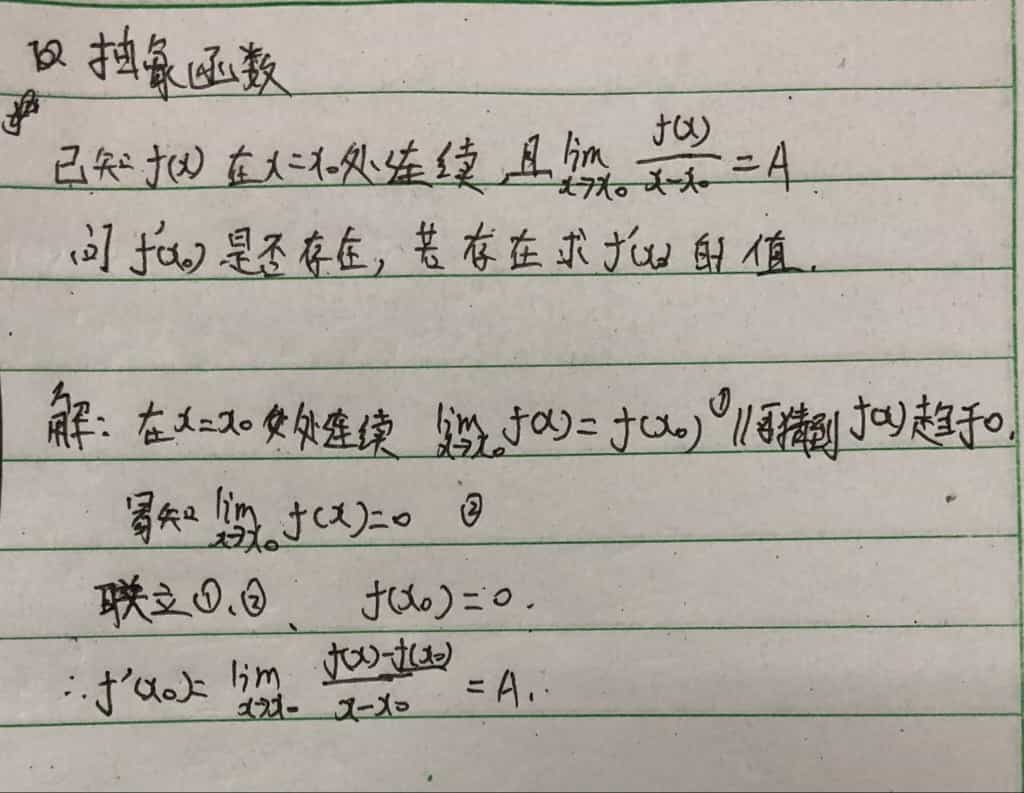 抽象函数
已知 f(x) 在 x=x₀处连续,且 lim x→x₀ f(x)/(x-x₀) = A
问 f'(x₀) 是否存在,若存在求 f'(x₀) 的值.
解: 在 x=x₀ 处连续 lim x→x₀ f(x) = f(x₀) ① // 再猜到 f(x) 趋于0.
易知 lim x→x₀ f(x)=0 ②
联立①、② 、 f(x₀)=0.
∴ f'(x₀)= lim x→x₀ (f(x)-f(x₀))/(x-x₀) = A.